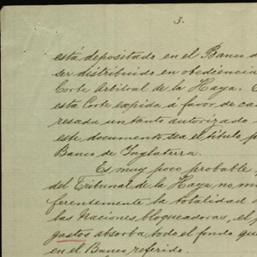 3.
está depositado en el Banco d
ser distribuido en obediencia
Corte Arbitral de la Haya. C
esta Corte expida á favor de ca
resada un tanto autorizado
este documento sea el título p
Banco de Inglaterra.
Es muy poco probable
del Tribunal de la Haya no m
ferentemente la totalidad
las Naciones bloqueadoras, el
gastos absorba todo el fondo qu
en el Banco referido.